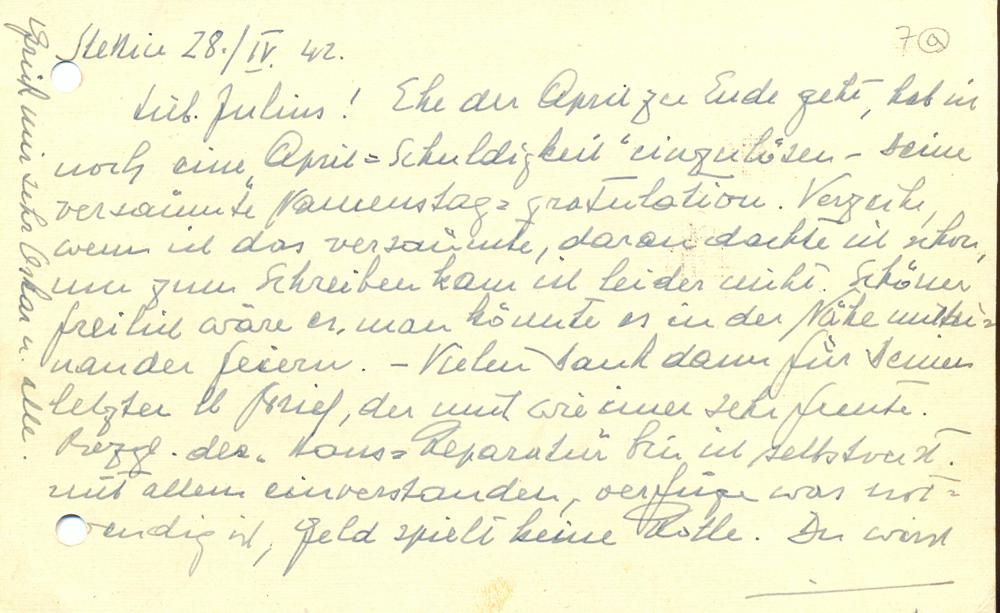 Stettin 28./IV. 42.
7 a
Lieb. Julius! Ehe der April zu Ende geht, hab ich
noch eine „April=Schuldigkeit“ einzulösen – Deine
versäumte Namenstag=gratulation. Verzeihe,
wenn ich das versäumte, daran dachte ich schon,
nur zum Schreiben kam ich leider nicht. Schöner
freilich wäre es, man könnte es in der Nähe mitei=
nander feiern. – Vielen Dank dann für Deinen
letzten lb Brief, der mich wie immer sehr freute.
Bezgl. der „Haus=Reparatur“ bin ich selbstverst.
mit allem einverstanden, verfüge was not=
wendig ist, Geld spielt keine Rolle. Du wirst
Grüß mir sehr Oskar u. alle.